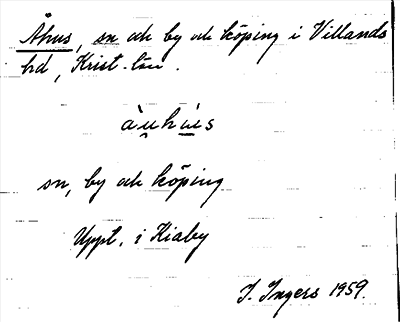 Åhus, sn och by och köping i Villands
hd, Krist. län.
àu̯hús
sn, by och köping
Uppt. i Kiaby
I. Ingers 1959.